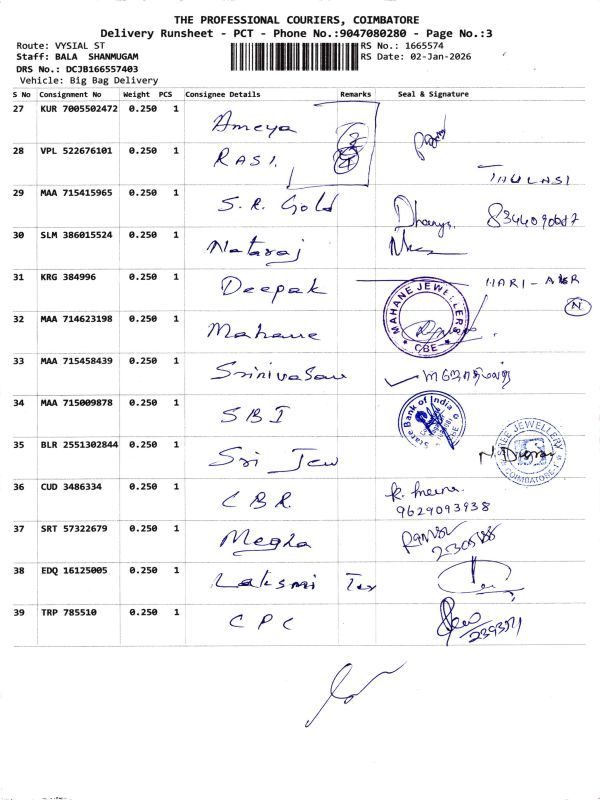 THE PROFESSIONAL COURIERS, COIMBATORE
Delivery Runsheet - PCT - Phone No.:9047080280 - Page No.:3
Route: VYSIAL ST
RS No.: 1665574
Staff: BALA SHANMUGAM
RS Date: 02-Jan-2026
DRS No.: DCJB166557403
Vehicle: Big Bag Delivery
S No Consignment No Weight PCS Consignee Details Remarks Seal & Signature
27 KUR 7005502472 0.250 1 Ameya
28 VPL 522676101 0.250 1 RASI
THULASI
29 MAA 715415965 0.250 1 S.R. Gold
30 SLM 386015524 0.250 1 Nataraj
31 KRG 384996 0.250 1 Deepak HARI
N
32 MAA 714623198 0.250 1 Mahane MAHANE JEWELLERS CBE
33 MAA 715458439 0.250 1 Srinivasan
34 MAA 715009878 0.250 1 SBI State Bank of India
35 BLR 2551302844 0.250 1 Sri Jew JEWELLERY COIMBATORE-1
36 CUD 3486334 0.250 1 CBR K. Meena
9629093938
37 SRT 57322679 0.250 1 Megha
38 EDQ 16125005 0.250 1 Laksmi Tex
39 TRP 785510 0.250 1 CPC